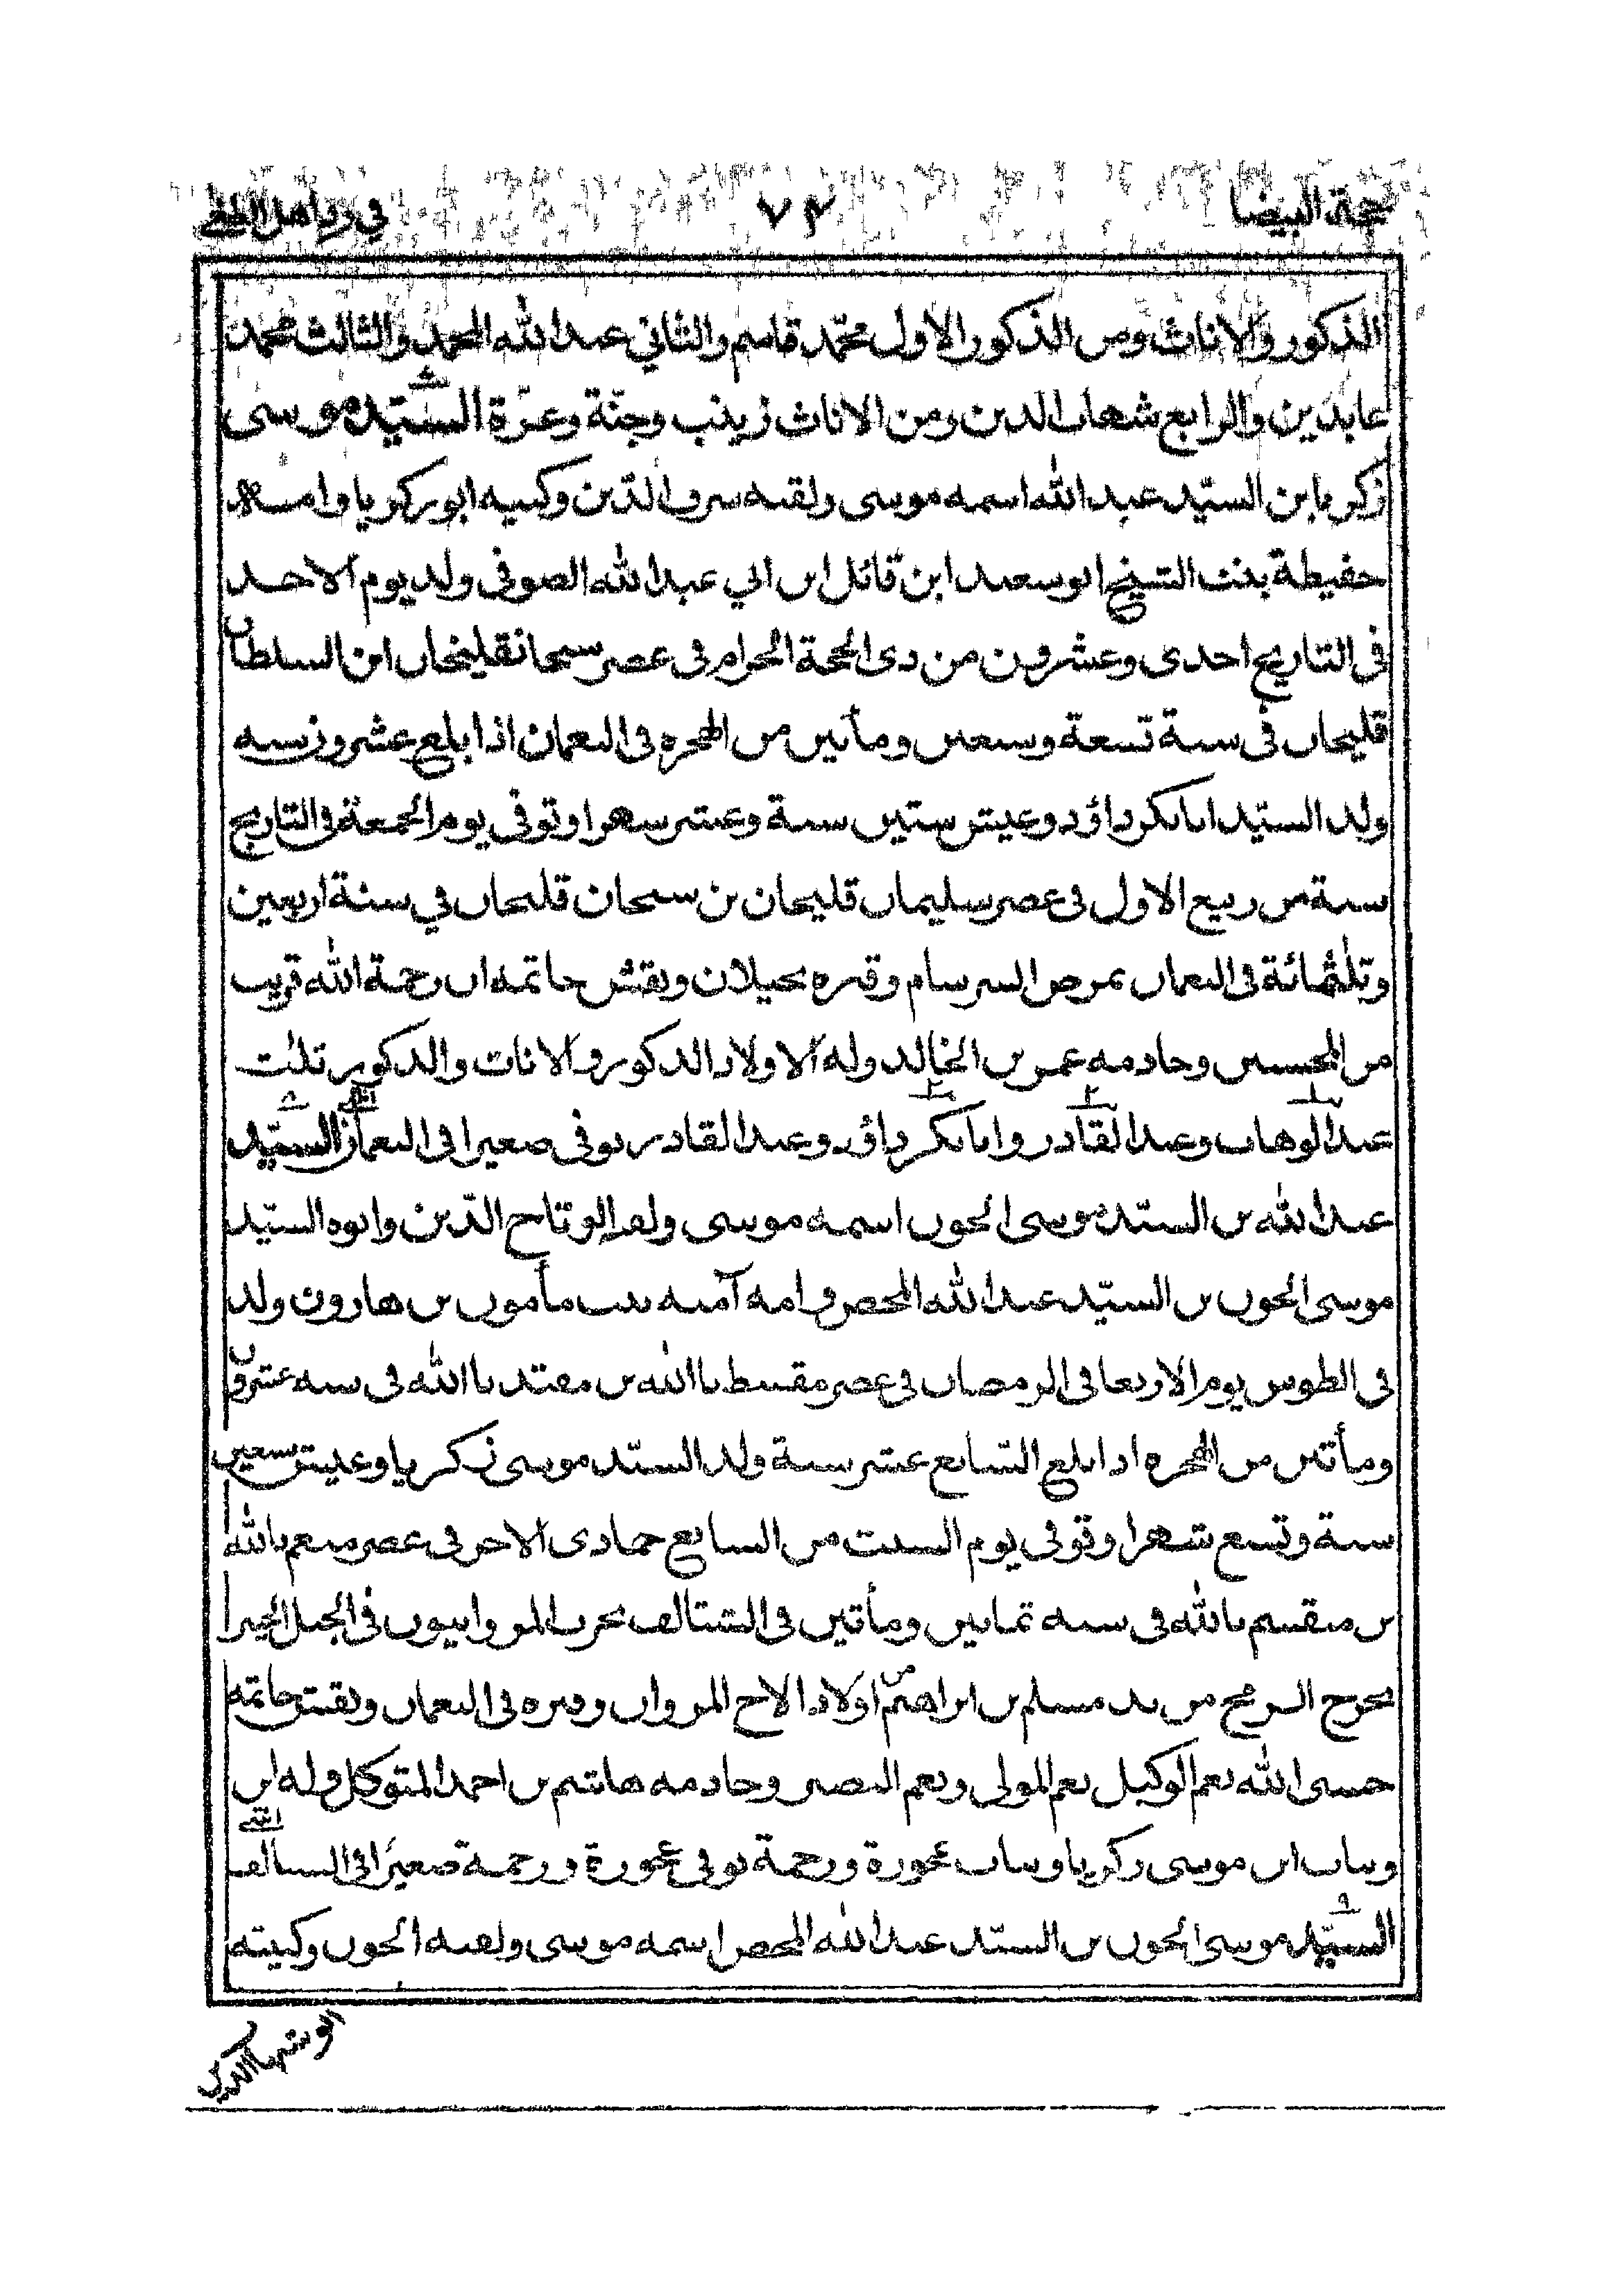 حجة البيضا ٧٣ في رد اهل الطغى
الذكور والاناث ومن الذكور الاول محمد قاسم والثاني عبد الله المحمد والثالث محمد
عابدين والرابع شهاب الدين ومن الاناث زينب وجنة وعزة السيد موسى
زكريا بن السيد عبد الله اسمه موسى ولقبه شرف الدين وكنيه ابو زكريا وامه
حفيظة بنت الشيخ ابو سعيد ابن قائل ابن ابي عبد الله الصوفى ولد يوم الاحد
فى التاريخ احدى وعشرون من ذى الحجة الحرام فى عصر ابن السلطان
قليجان فى سنة تسعة وسبعين ومأتين من الهجره فى النعمان اذا بلغ عشرون سنه
ولد السيد ابابكر داؤد وعيش ستين سنة وعشر شهرا وتوفى يوم الجمعة فى التاريخ
ستة من ربيع الاول فى عصر سليمان قليجان بن سبحان قليجان في سنة اربعين
وثلثمائة فى النعمان بمرض السرسام وقبره بجيلان ونقش خاتمه ان رحمة الله قريب
من المحسنين وخادمه عمر بن الخالد وله الاولاد الذكور والاناث والذكور ثلث
عبد الوهاب وعبد القادر وابابكر داؤد وعبد القادر توفى صغيرا فى النعمان السيد
عبد الله بن السيد موسى الجون اسمه موسى ولقبه ابو تاج الدين وابوه السيد
موسى الجون بن السيد عبد الله المحض وامه آمنه بنت مأمون بن هارون ولد
فى الطوس يوم الاربعا فى الرمضان فى عصر مقسط باالله بن مقتد باالله فى سنه عشرون
ومأتين من الهجره اذا بلغ السابع عشر سنة ولد السيد موسى زكريا وعيش سبعين
سنة وتسع شهرا وتوفى يوم السبت من السابع جمادى الاخر فى عصر منعم بالله
بن منقسم بالله فى سنه ثمانين ومأتين فى بحرب المروانيون فى الجبل
بجرح الرمح من يد مسلم بن ابراهيم من اولاد الاخ المروان وقبره فى النعمان ونقش خاتمه
حسبى الله نعم الوكيل نعم المولى ونعم النصير وخادمه هاشم بن احمد المتوكل وله ابن
وبنات ابن موسى زكريا وبنات عجوزة ورحمة توفى عجوزة ورحمة صغيرا فى
السيد موسى الجون بن السيد عبد الله المحض اسمه موسى ولقبه الجون وكنيته